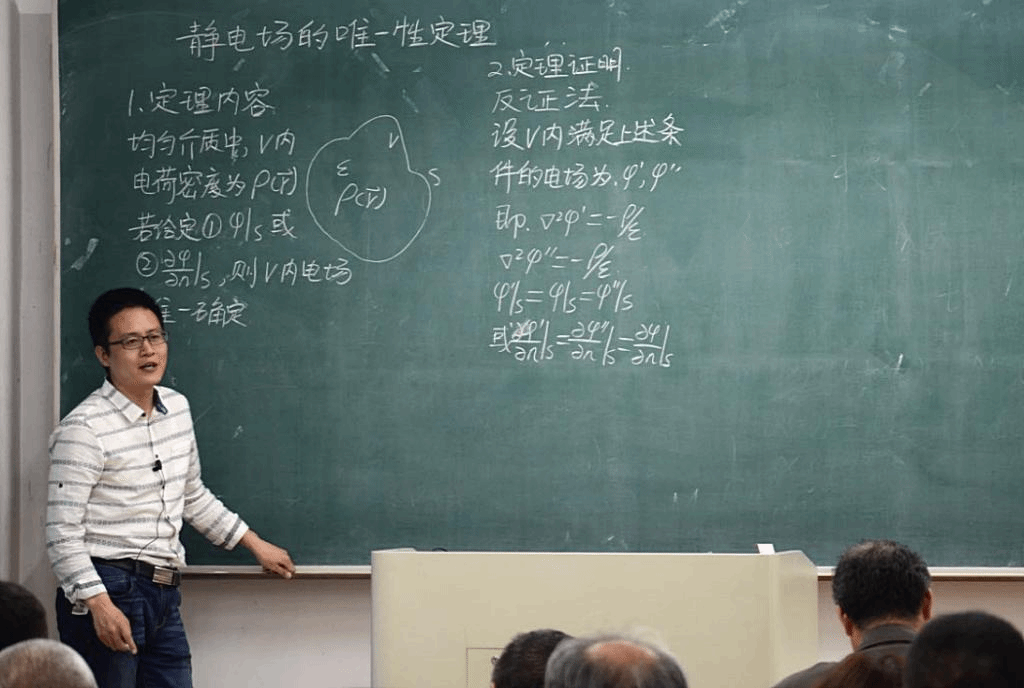 静电场的唯一性定理
1.定理内容
均匀介质中,V内
电荷密度为ρ(r⃗)
若给定①φ|s或
②∂φ/∂n|s,则V内电场
唯一确定
V
S
ε
ρ(r⃗)
2.定理证明.
反证法.
设V内满足上述条
件的电场为.φ′,φ″
即.∇²φ′=-ρ/ε
∇²φ″=-ρ/ε.
φ′|s=φ|s=φ″|s
或∂φ′/∂n|s=∂φ″/∂n|s=∂φ/∂n|s